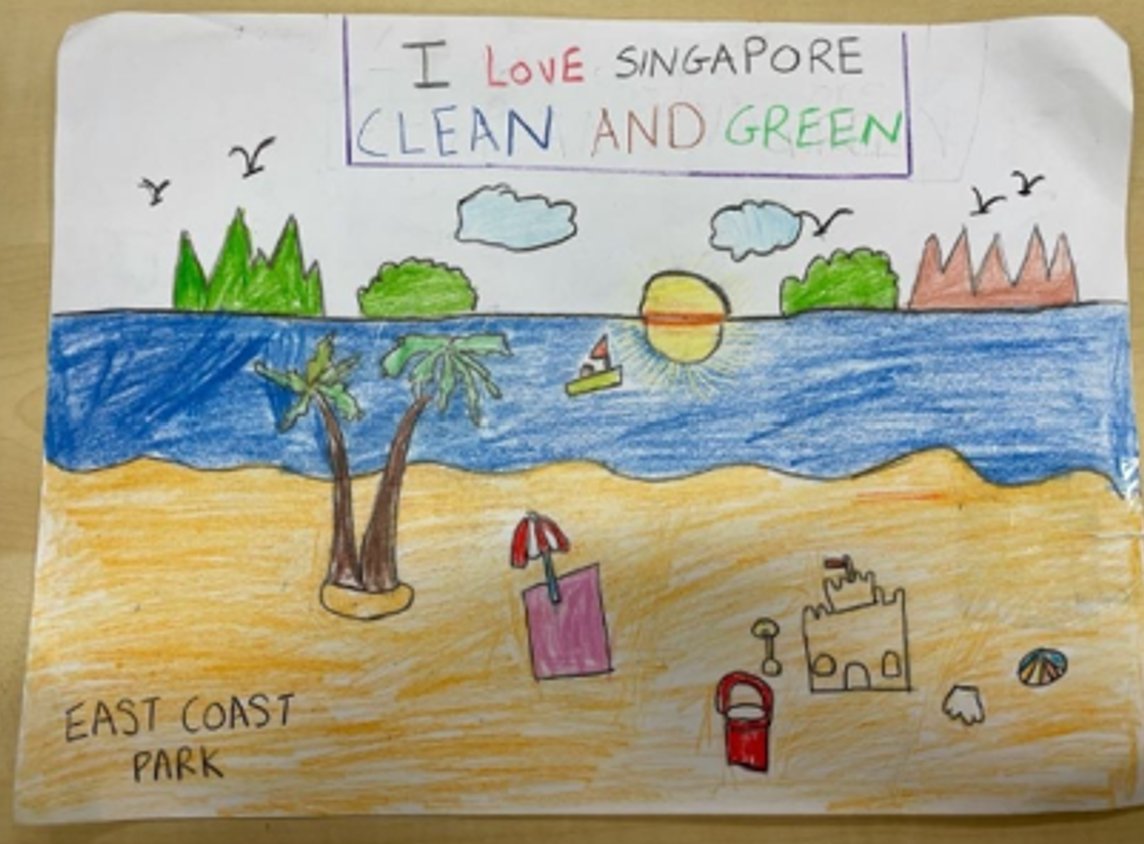 I LOVE SINGAPORE
CLEAN AND GREEN
EAST COAST
PARK